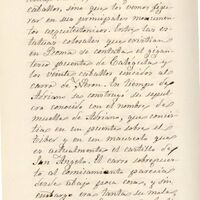 caballos, sino que lo vemos figurar
en sus principales monumentos
arquitectónicos. Entre las
estatuas colosales que existían
en Roma se contaba el gigantesco
presente de Calígula y
los veinte caballos uncidos al
carro de Neron. En tiempo de
Adriano se construyó su sepulcro
conocido con el nombre de
muelle de Adriano, que consistía
en un puente sobre el
Tiber y en un mausoleo que
es actualmente el castillo de
San Angelo. El carro sobrepuesto
al coronamiento parecía
desde abajo poca cosa, y sin
embargo era tanta su mole,